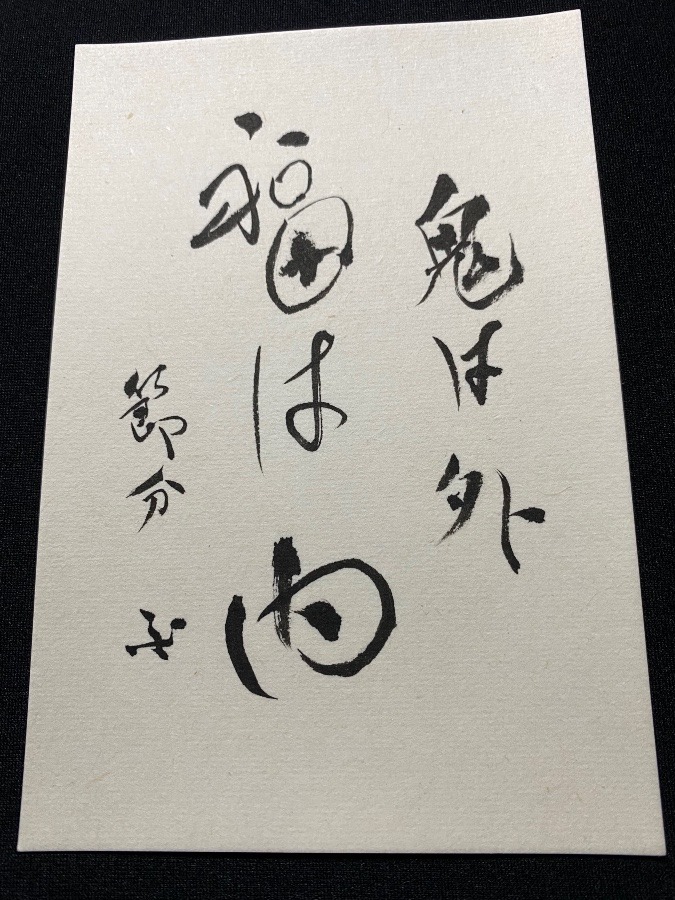 鬼は外
福は内
節分